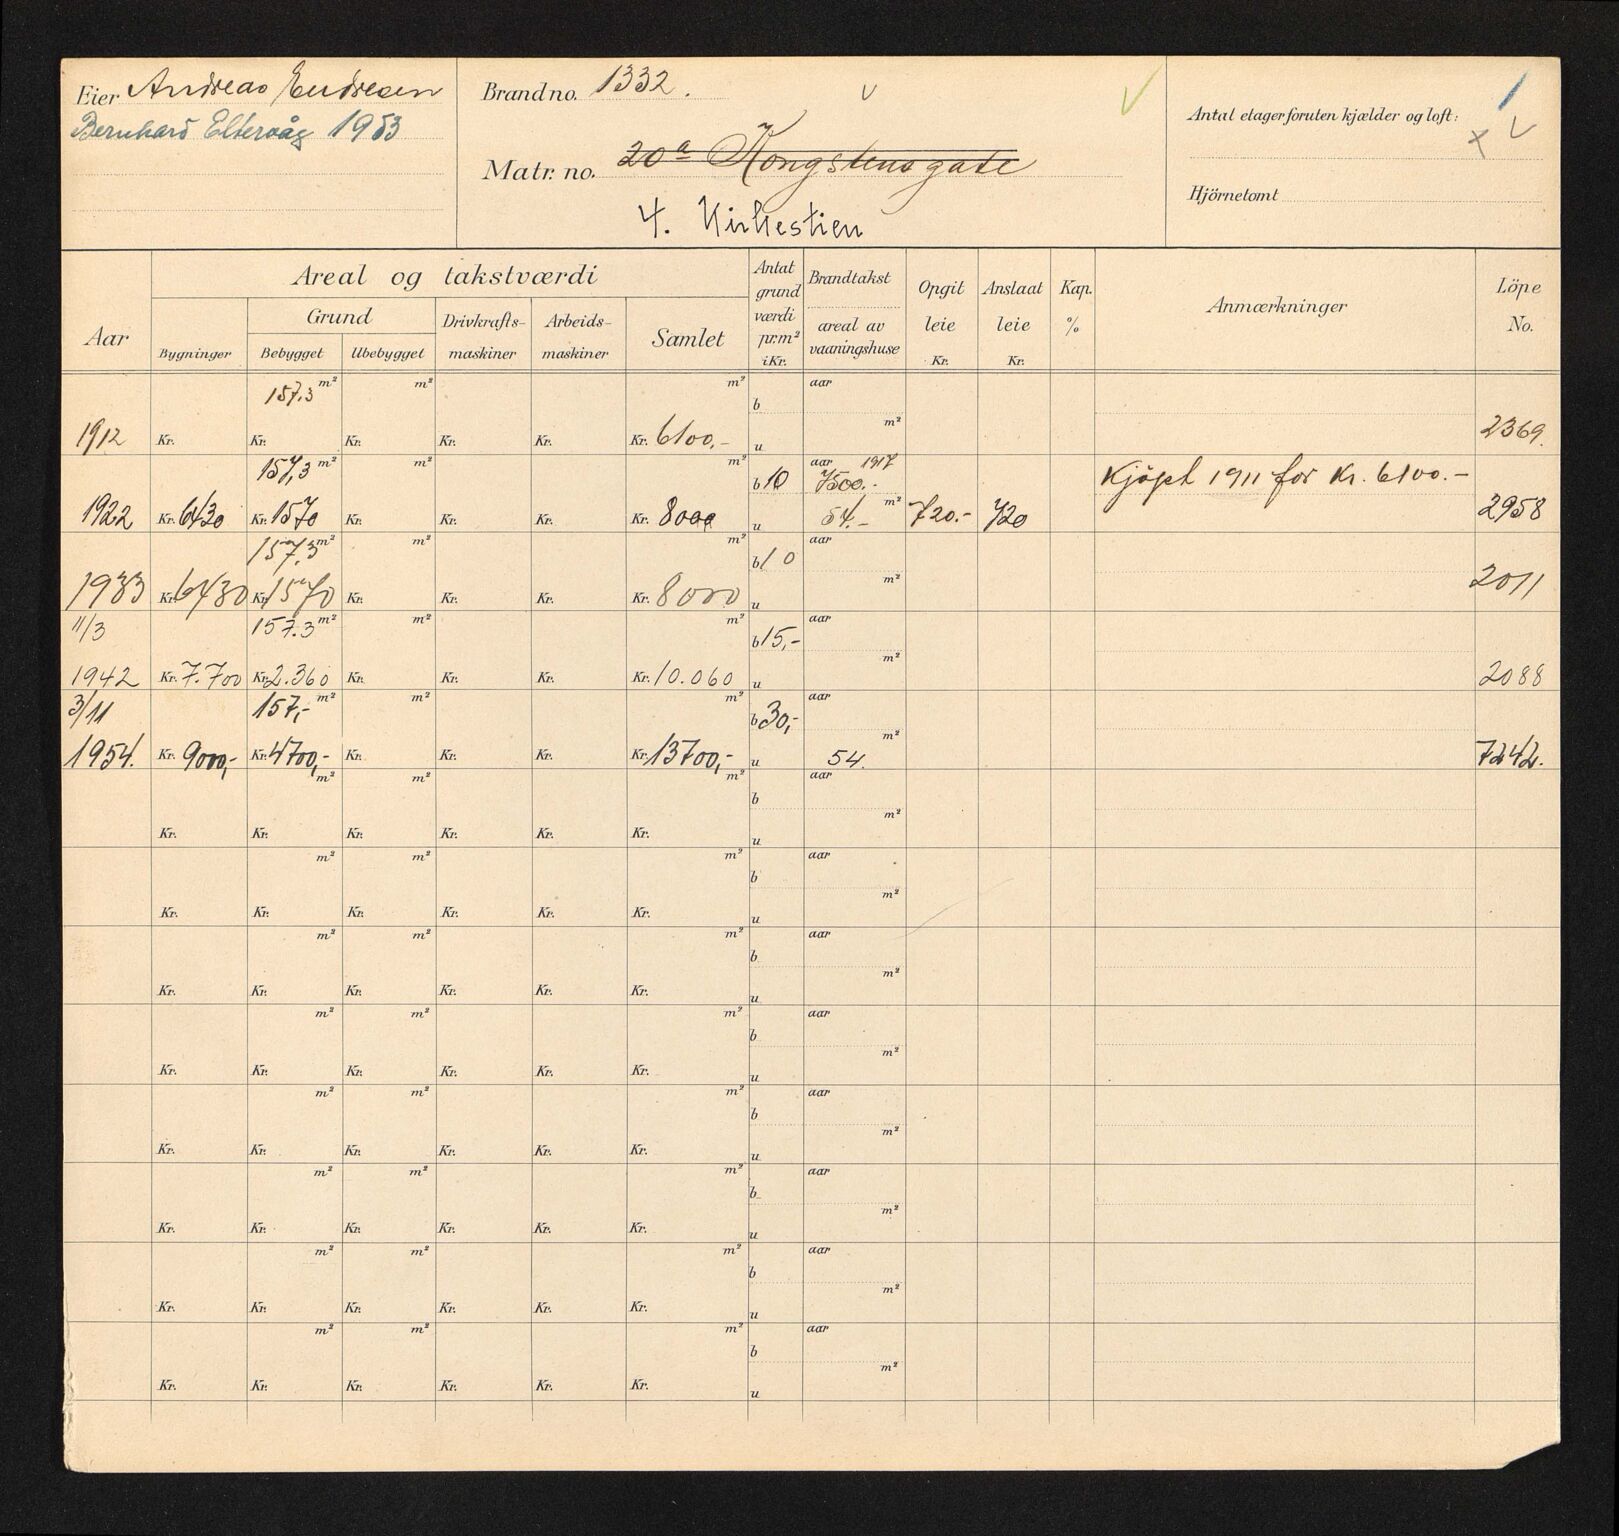 Eier Andreas Endresen
Bernhard Eltervåg 1953
Brand no. 1332.
Matr. no. 20a Kongstensgate
4. Kirkestien
Antal etager foruten kjælder og loft: 1
Hjörnetomt
Aar
Areal og takstværdi
Bygninger
Grund
Bebygget Ubebygget
Drivkrafts-
maskiner
Arbeids-
maskiner
Samlet
Antat
grund
værdi
pr.m²
i Kr.
Brandtakst
areal av
vaaningshuse
Opgit
leie
Kr.
Anslaat
leie
Kr.
Kap.
%
Anmærkninger
Löpe
No.
157.3 m² m² m² b aar
1912 Kr. Kr. Kr. Kr. Kr. Kr. 6100,- u m² 2369.
157,3 m² m² m² b 10 aar 1917 7500.- Kjöpt 1911 for Kr. 6100.-
1922 Kr. 6430 Kr. 1570 Kr. Kr. Kr. Kr. 8000 u 54.- m² 720.- 720 2958
157.3 m² m² m² b 10 aar
1933 Kr. 6430 Kr. 1570 Kr. Kr. Kr. Kr. 8000 u m² 2011
11/3 157.3 m² m² m² b 15,- aar
1942 Kr. 7.700 Kr. 2.360 Kr. Kr. Kr. Kr. 10.060 u m² 2088
3/11 157,- m² m² m² b 30,- aar
1954. Kr. 9000,- Kr. 4700,- Kr. Kr. Kr. Kr. 13700,- u 54. m² 7242.
m² m² m² b aar
Kr. Kr. Kr. Kr. Kr. Kr. u m²
m² m² m² b aar
Kr. Kr. Kr. Kr. Kr. Kr. u m²
m² m² m² b aar
Kr. Kr. Kr. Kr. Kr. Kr. u m²
m² m² m² b aar
Kr. Kr. Kr. Kr. Kr. Kr. u m²
m² m² m² b aar
Kr. Kr. Kr. Kr. Kr. Kr. u m²
m² m² m² b aar
Kr. Kr. Kr. Kr. Kr. Kr. u m²
m² m² m² b aar
Kr. Kr. Kr. Kr. Kr. Kr. u m²
m² m² m² b aar
Kr. Kr. Kr. Kr. Kr. Kr. u m²